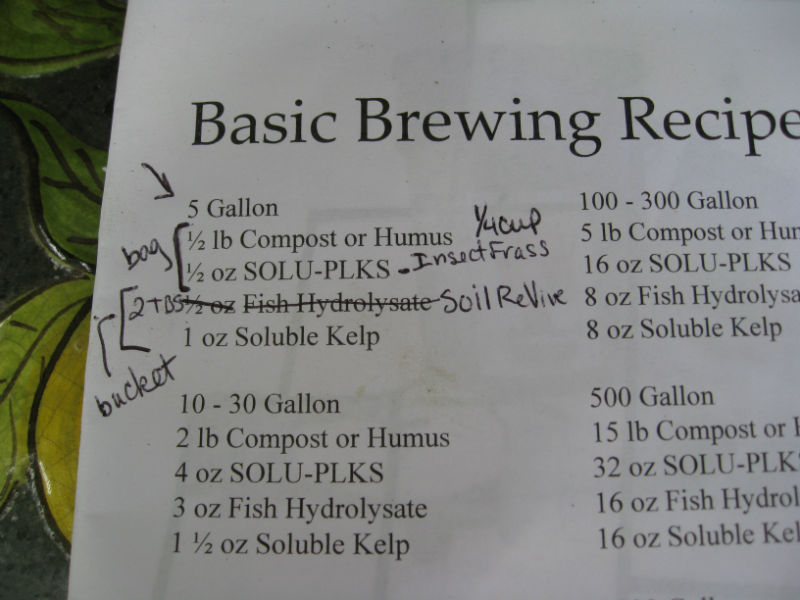 Basic Brewing Recipe
5 Gallon
½ lb Compost or Humus ¼ cup
bag ½ oz SOLU-PLKS - Insect Frass
2 TBS ½ oz Fish Hydrolysate - Soil ReVive
1 oz Soluble Kelp
bucket
10 - 30 Gallon
2 lb Compost or Humus
4 oz SOLU-PLKS
3 oz Fish Hydrolysate
1 ½ oz Soluble Kelp
100 - 300 Gallon
5 lb Compost or Hum
16 oz SOLU-PLKS
8 oz Fish Hydrolysa
8 oz Soluble Kelp
500 Gallon
15 lb Compost or H
32 oz SOLU-PLK
16 oz Fish Hydrol
16 oz Soluble Kel